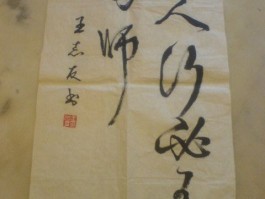 人行必
师
王志友书